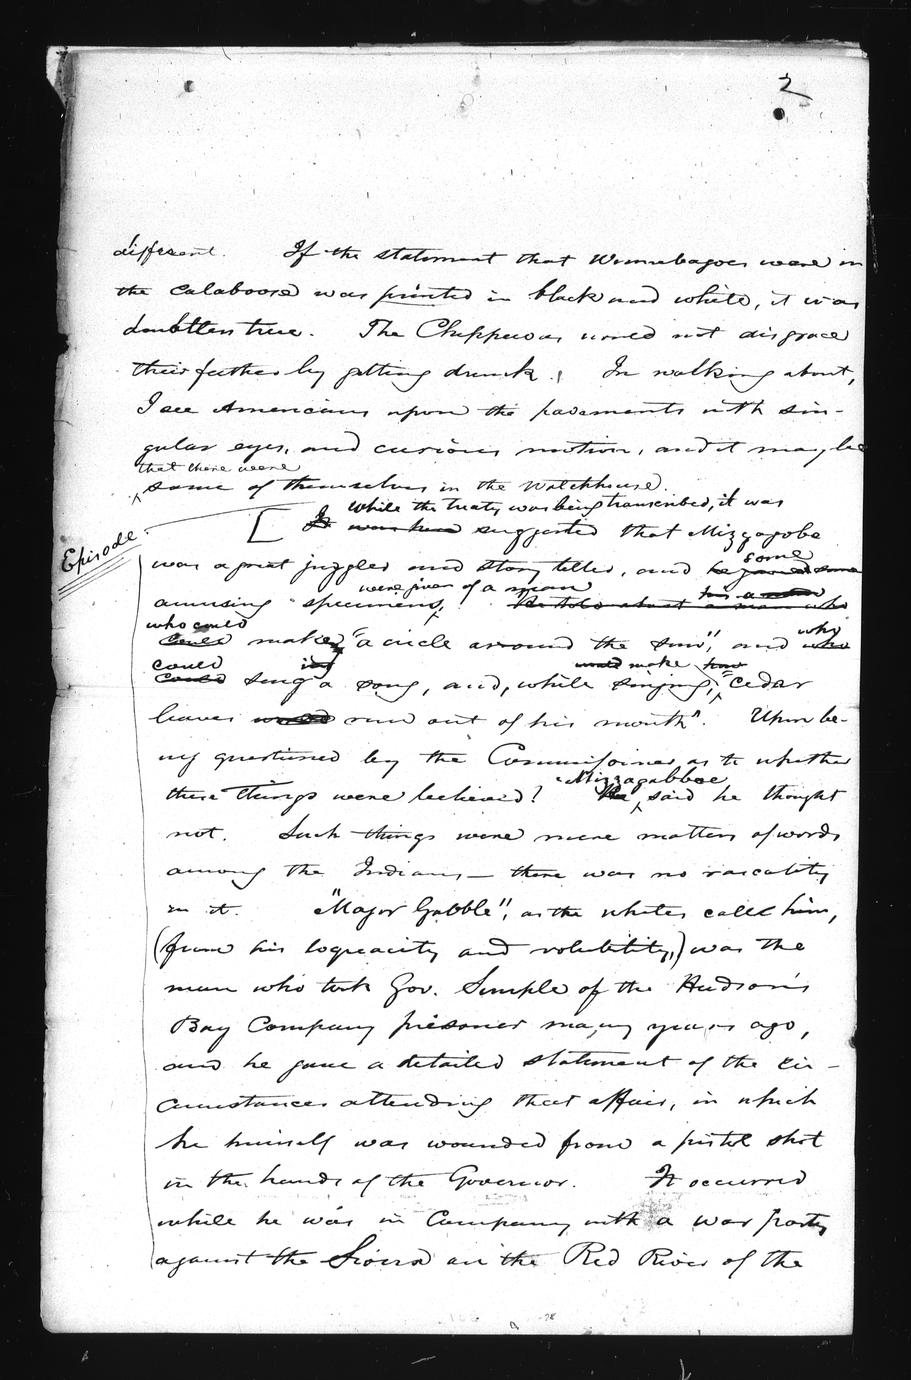 2
different. If the statement that Winnebagoes were in
the Calaboose was printed in black and white, it was
doubtless true. The Chippewas would not disgrace
their father by getting drunk. In walking about,
I see Americans upon the pavements with sin-
gular eyes, and curious motion, and it may be
that there were
some of themselves in the Watchhouse.
while the treaty was being transcribed, it was
[ It was here suggested that Mizzagobe
Episode.
was a great juggler and story teller, and he gave some
some
amusing "specimens, were given of a man
He told about a man who
who could
could make "a circle around the sun", and who
who
could
could sing a song, and, while singing, make "cedar
leaves would run out of his mouth". Upon be-
ing questioned by the Commissioner as to whether
these things were believed? He said he thought
Mizzagabboe
not. Such things were mere matters of words
among the Indians — there was no rascality
in it. "Major Gobble", as the whites call him,
(from his loquacity and volubility,) was the
man who took Gov. Semple of the Hudson's
Bay Company prisoner many years ago,
and he gave a detailed statement of the cir-
cumstances attending that affair, in which
he himself was wounded from a pistol shot
in the hands of the Governor. It occurred
while he was in Company with a war party
against the Sioux on the Red River of the